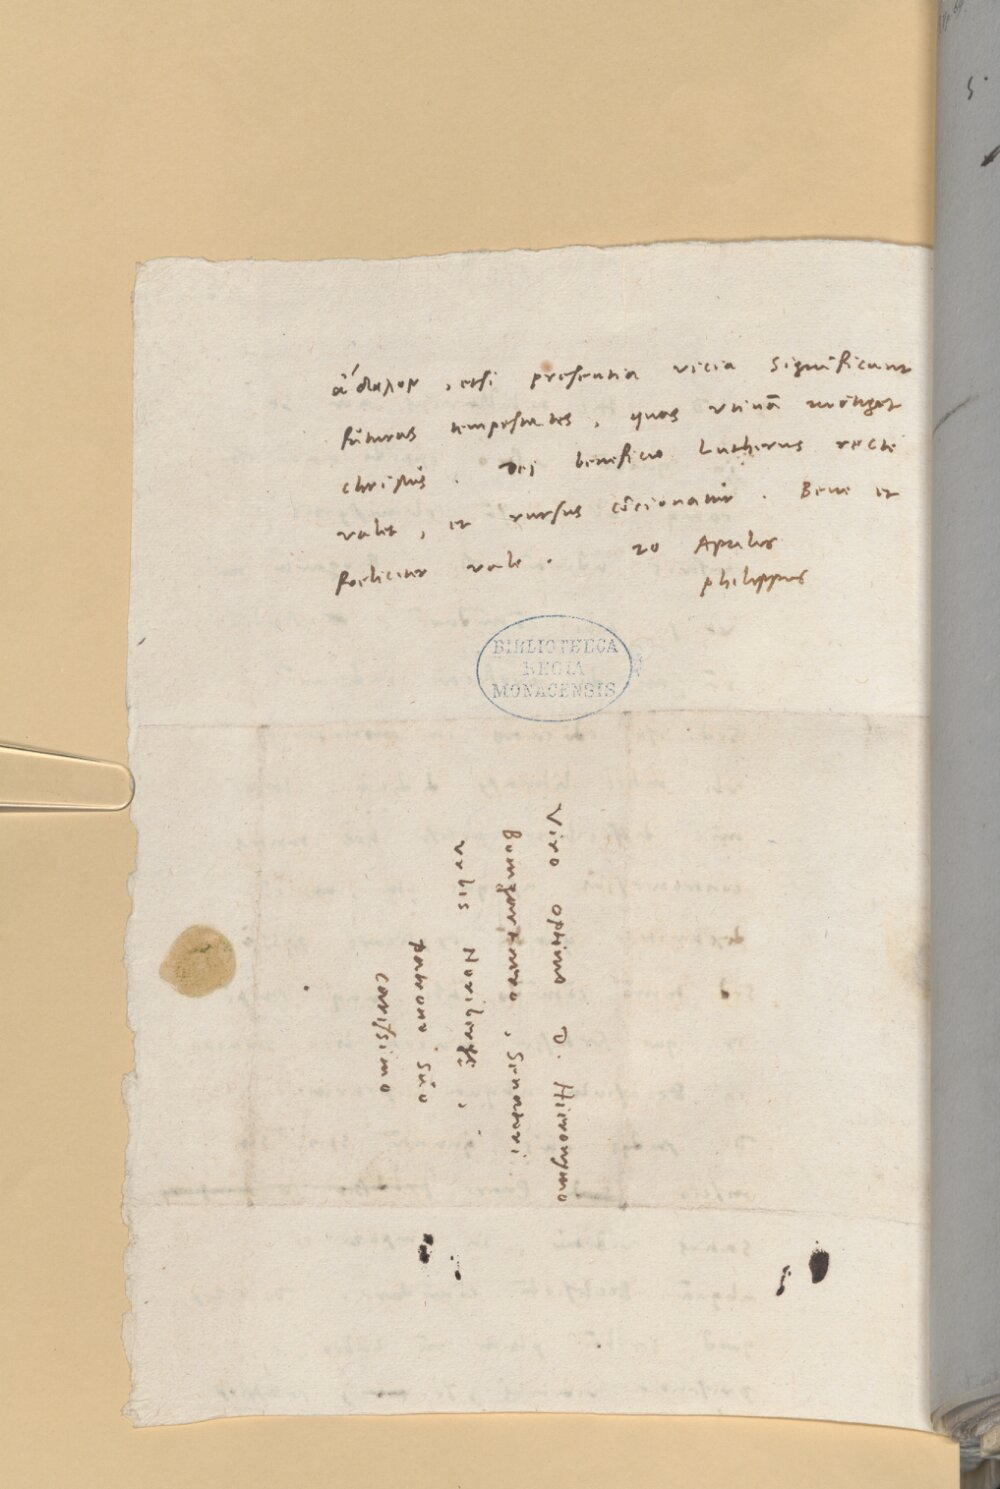 ἄδηλον, etsi presentia vicia significant
futuras tempestates, quas vtinā mitiget
Christus. Dei beneficio Lutherus recte
valet, et rursus cōcionatur. Bene et
foeliciter vale. 20 Aprilis
philippus
BIBLIOTHECA
REGIA
MONACENSIS
Viro optimo D. Hieronymo
Bomgartnero, Senatori
vrbis
patrono suo
carissimo